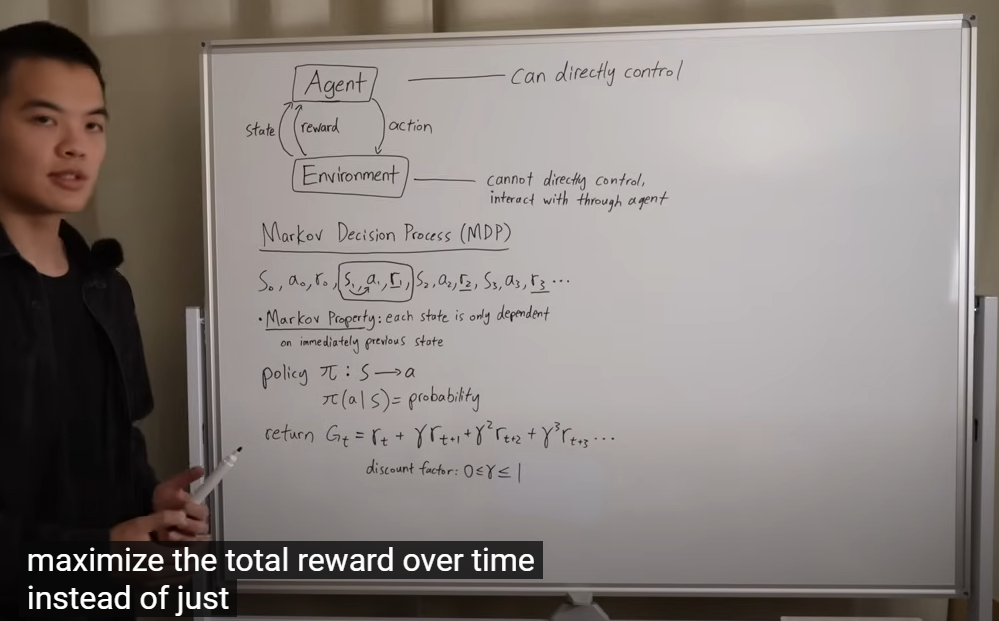 Agent
Can directly control
state
reward
action
Environment
cannot directly control,
interact with through agent
Markov Decision Process (MDP)
S₀, a₀, r₀, S₁, a₁, r₁, S₂, a₂, r₂, S₃, a₃, r₃ ...
• Markov Property: each state is only dependent
on immediately previous state
policy π : S → a
π(a|s) = probability
return Gₜ = rₜ + γrₜ₊₁ + γ²rₜ₊₂ + γ³rₜ₊₃ ...
discount factor: 0 ≤ γ ≤ 1
maximize the total reward over time
instead of just